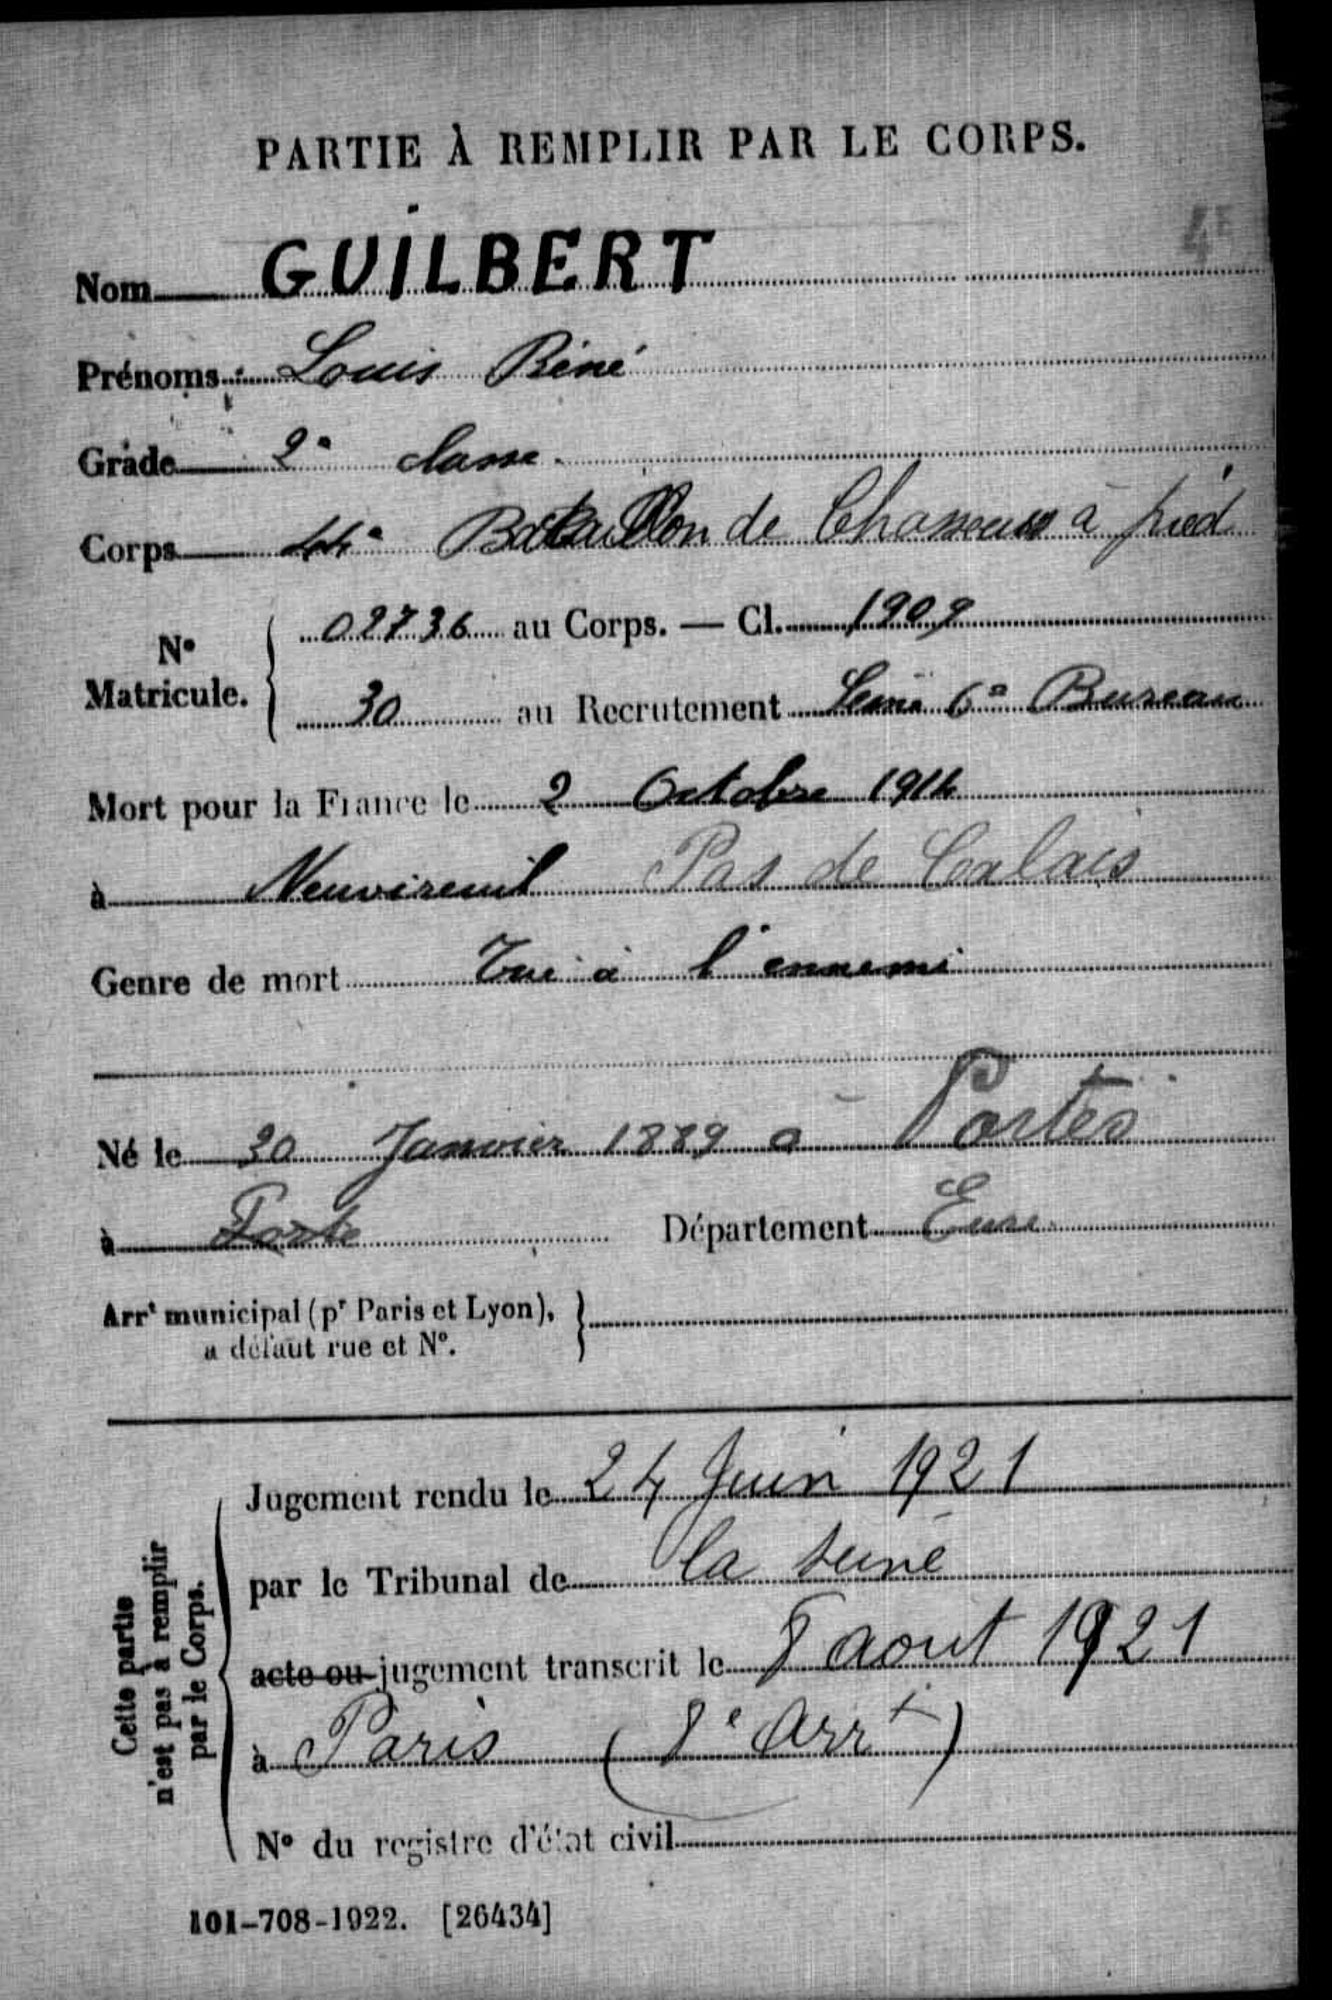 PARTIE À REMPLIR PAR LE CORPS.
Nom GUILBERT
Prénoms: Louis Réné
Grade 2e classe.
Corps 44e Bataillon de Chasseurs à pied
No Matricule. { 02736 au Corps. — Cl. 1909
30 au Recrutement Seine 6e Bureau
Mort pour la France le 2 Octobre 1914
à Neuvireuil Pas de Calais
Genre de mort Tué à l'ennemi
Né le 30 Janvier 1889 à Portes
à Porte Département Eure
Arrt municipal (pr Paris et Lyon), à défaut rue et No. }
Cette partie n'est pas à remplir par le Corps.
Jugement rendu le 24 Juin 1921
par le Tribunal de la Seine
acte ou jugement transcrit le 8 aout 1921
à Paris (8e Arrt)
No du registre d'état civil
101-708-1922. [26434]